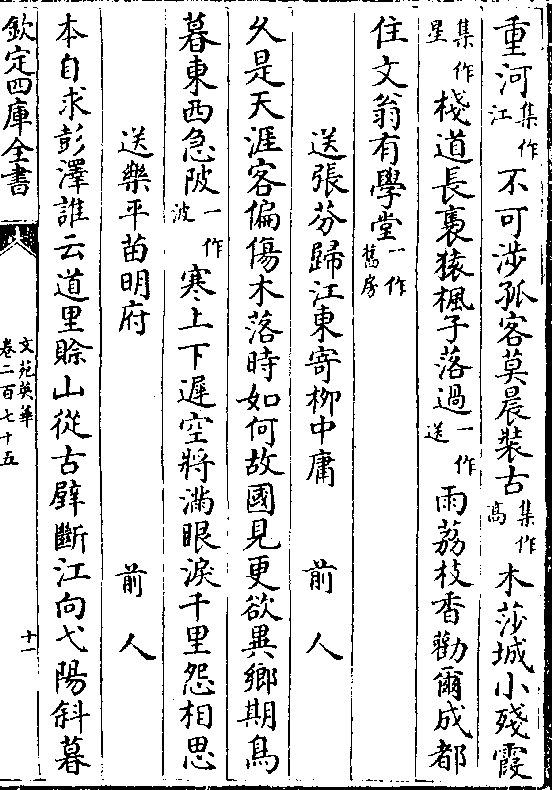 重河集作江不可涉孤客莫晨裝古集作高木莎城小殘霞
集作星棧道長裹猿楓子落過一作送雨荔枝香勸爾成都
住文翁有學堂一作舊房
送張芬歸江東寄柳中庸　前人
乆是天涯客偏傷木落時如何故國見更欲異鄉期鳥
暮東西急陂一作波寒上下遲空將滿眼淚千里怨相思
送樂平苗明府　前人
本自求彭澤誰云道里賒山從古壁斷江向弋陽斜暮
欽定四庫全書
文苑英華
卷二百七十五
十一